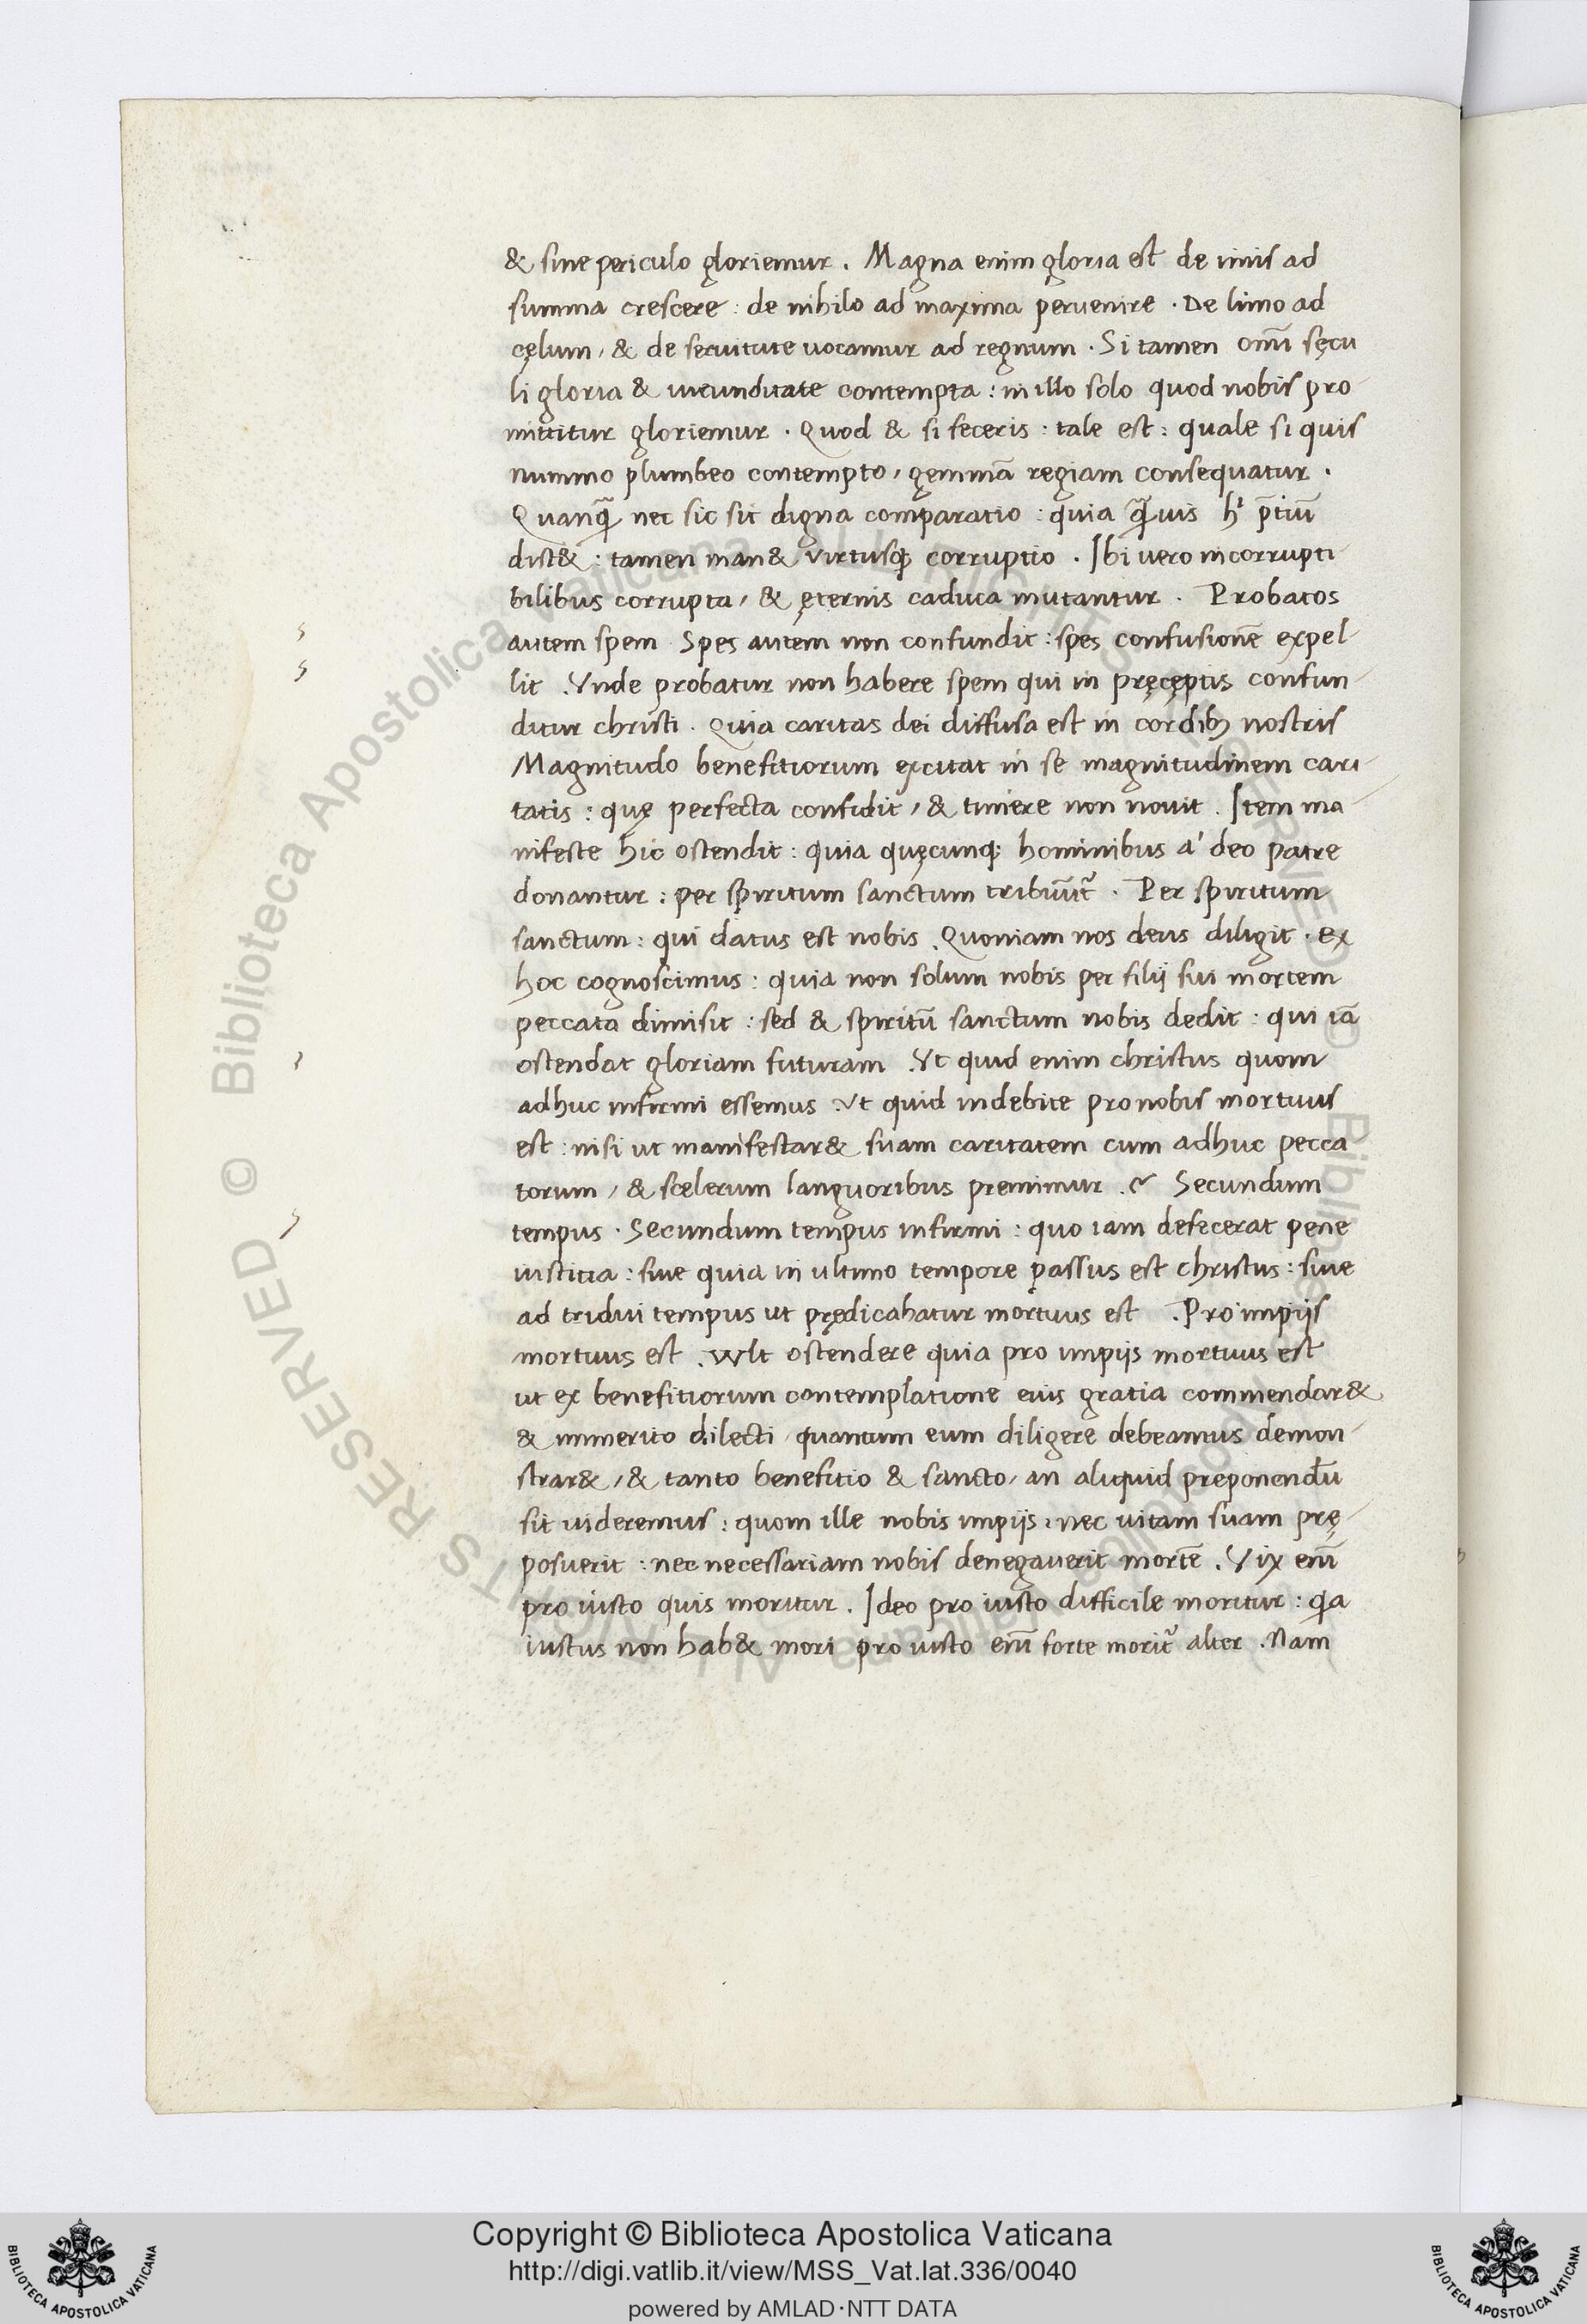 & sine periculo gloriemur. Magna enim gloria est de imis ad
summa crescere: de nihilo ad maxima peruenire. De limo ad
cęlum, & de seruitute uocamur ad regnum. Si tamen om̄i sęcu
li gloria & iucunditate contempta: in illo solo quod nobis pro-
mittitur gloriemur. Quod & si feceris: tale est: quale si quis
nummo plumbeo contempto, gemmā regiam consequatur.
Quanq̄ nec sic sit digna comparatio: quia q̄uis hᷤ p̄tiū
dist&: tamen man& virtusq; corruptio. Ibi uero incorrupti-
bilibus corrupta, & ęternis caduca mutantur. Probatos
autem spem. Spes autem non confundit: spes confusionē expel-
lit. Vnde probatur non habere spem qui in pręcęptis confun-
ditur christi. Quia caritas dei diffusa est in cordib; nostris
Magnitudo benefitiorum excitat in se magnitudinem cari-
tatis: quę perfecta confidit, & timere non nouit. Item ma-
nifeste hic ostendit: quia quęcunq; hominibus a' deo patre
donantur: per spiritum sanctum tribuūt᷑. Per spiritum
sanctum: qui datus est nobis. Quoniam nos deus diligit. ex
hoc cognoscimus: quia non solum nobis per filij sui mortem
peccata dimisit: sed & spiritū sanctum nobis dedit: qui iā
ostendat gloriam futuram. Vt quid enim christus quom
adhuc infirmi essemus. Vt quid indebite pro nobis mortuus
est: nisi ut manifestar& suam caritatem cum adhuc pecca
torum, & scelerum languoribus premimur.~ Secundum
tempus. Secundum tempus infirmi: quo iam defecerat pene
iustitia: siue quia in ultimo tempore passus est christus: siue
ad tridui tempus ut prędicabatur mortuus est. Pro impijs
mortuus est. Wlt ostendere quia pro impijs mortuus est
ut ex benefitiorum contemplatione eius gratia commendar&
& immerito dilecti, quantum eum diligere debeamus demon-
strar&, & tanto benefitio & sancto, an aliquid preponendū
sit uideremus: quom ille nobis impijs, nec uitam suam prę-
posuerit: nec necessariam nobis denegauerit mortē. Vix enī
pro iusto quis moritur. Ideo pro iusto difficile moritur: q̇a
iustus non hab& mori pro iusto enī forte morit᷑ alter. Nam
Copyright © Biblioteca Apostolica Vaticana
http://digi.vatlib.it/view/MSS_Vat.lat.336/0040
powered by AMLAD·NTT DATA
BIBLIOTECA APOSTOLICA VATICANA
BIBLIOTECA APOSTOLICA VATICANA